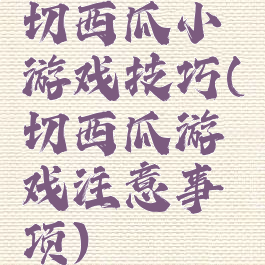 切西瓜小
游戏技巧(
切西瓜游
戏注意事
项)